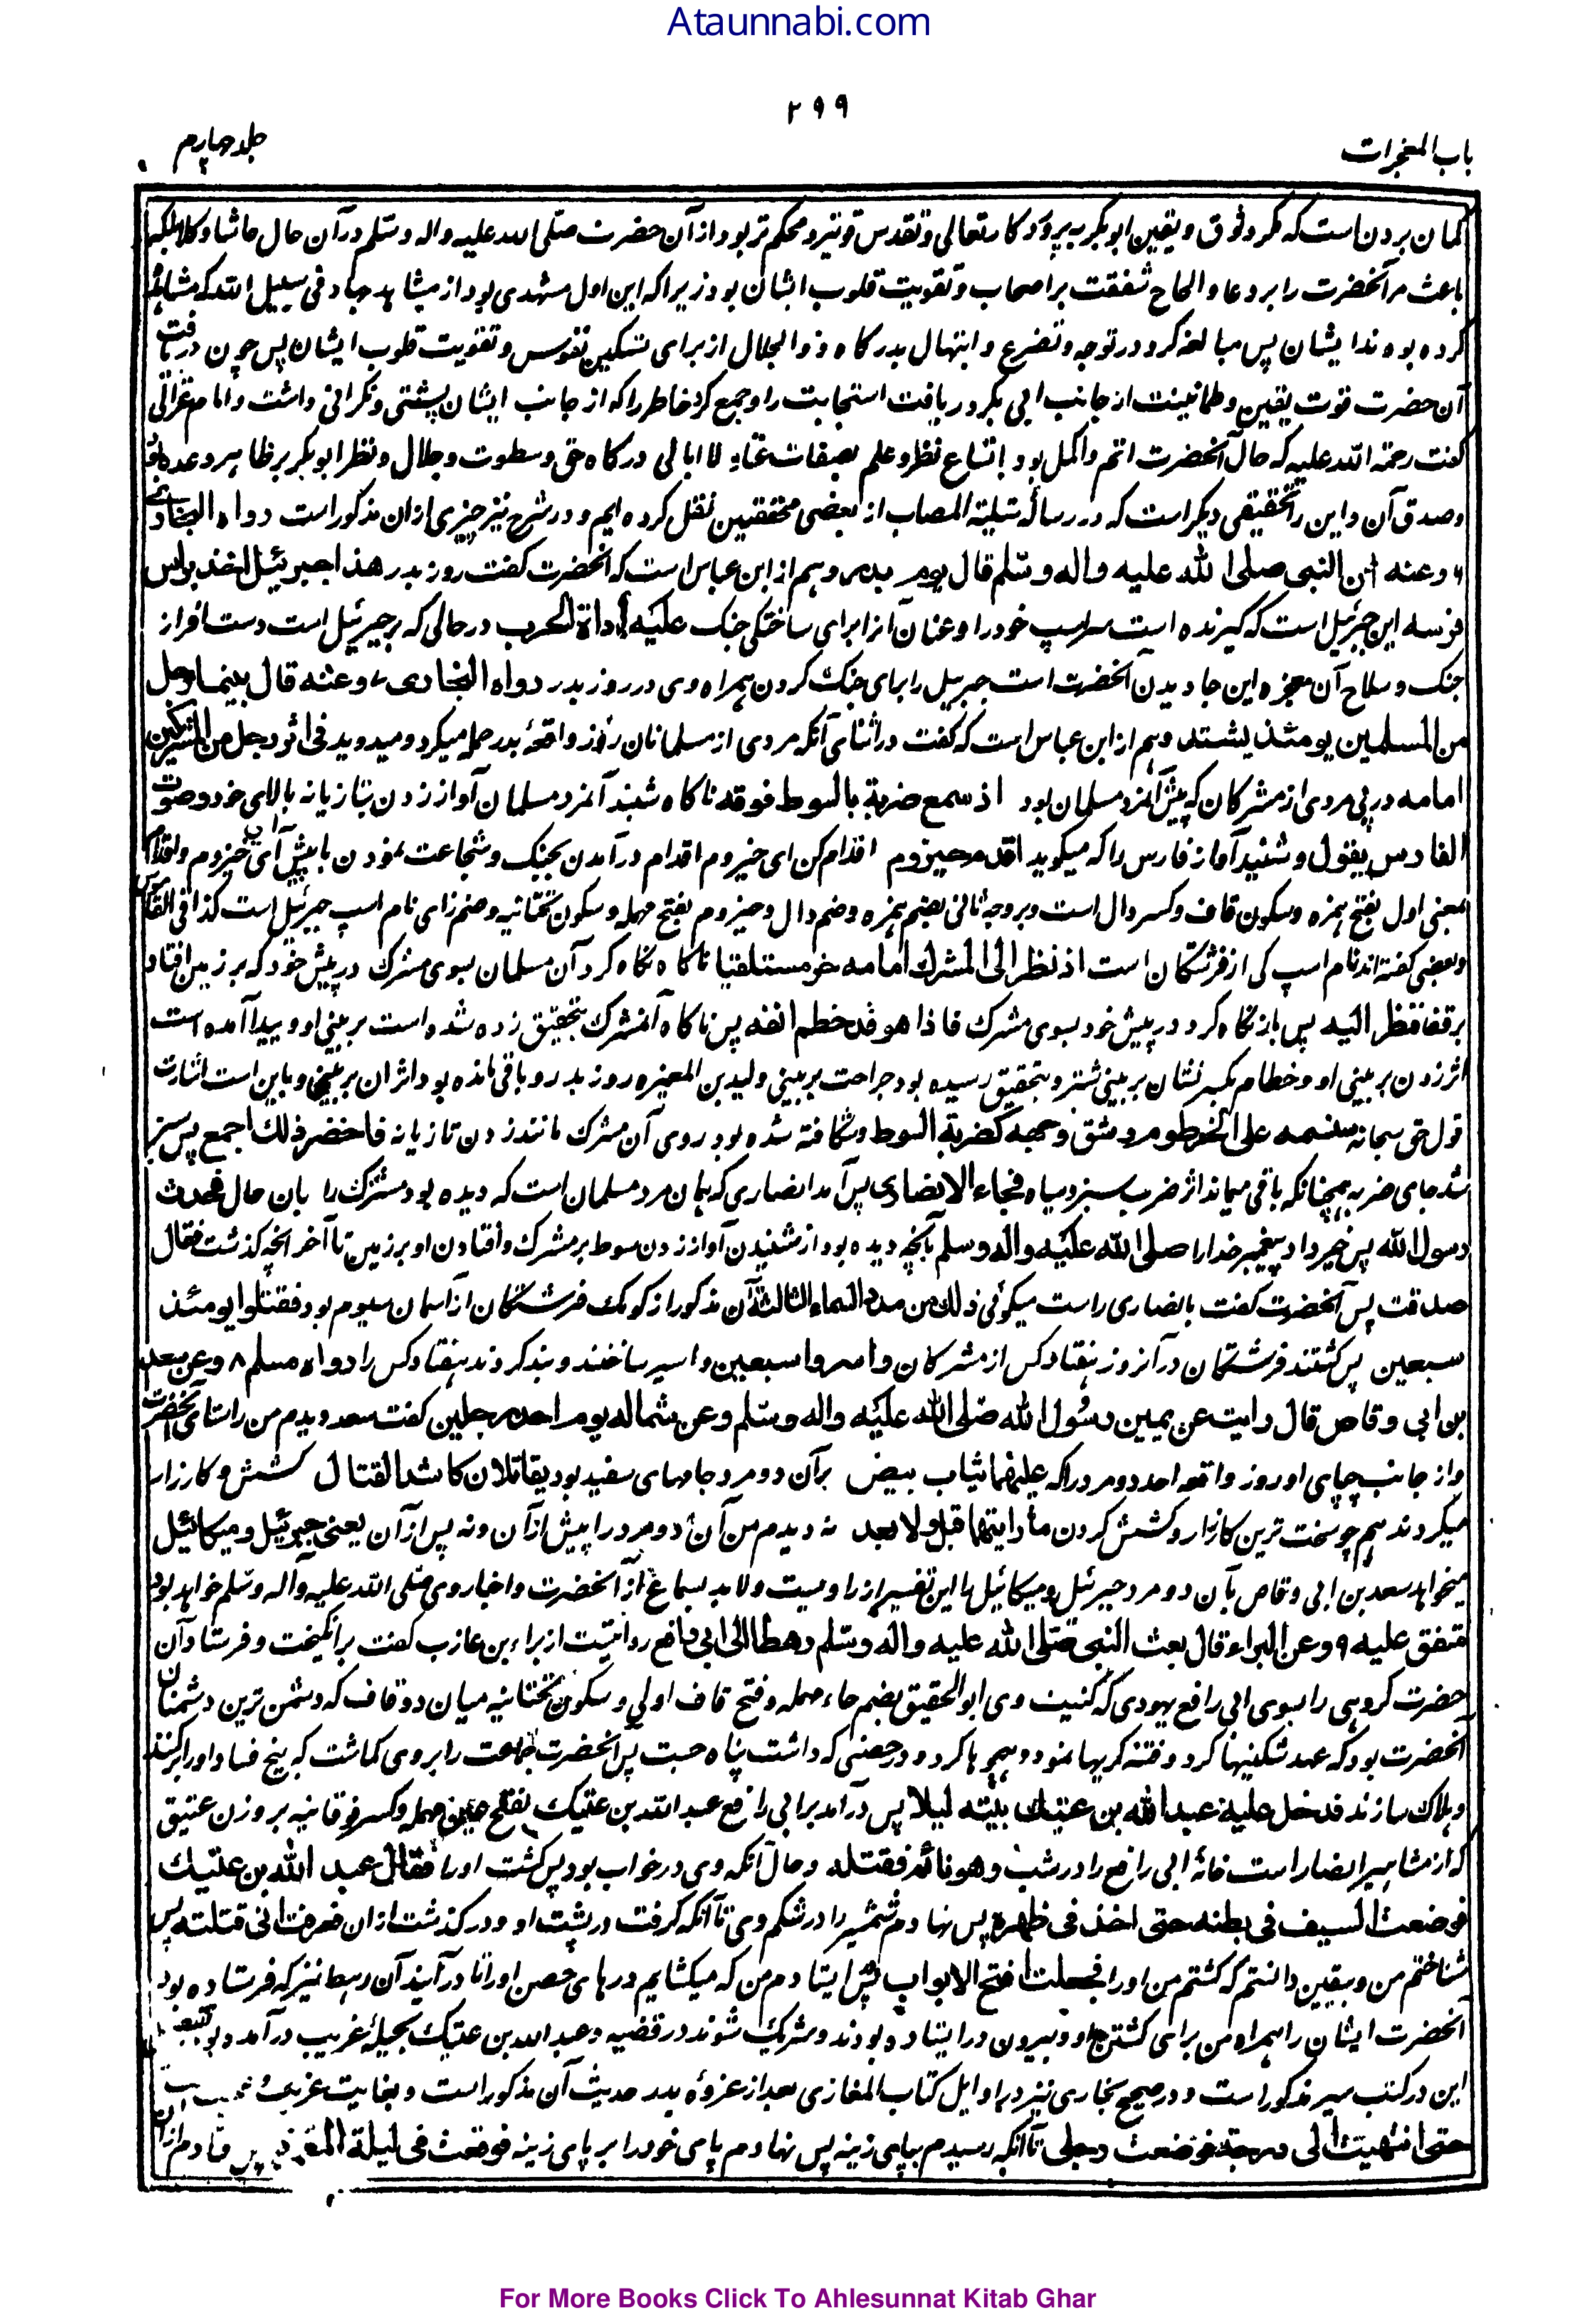 Ataunnabi.com
۲۹۹
باب المعجزات
جلد چهارم
کمان بردن است که مکر وثوق و یقین ابوبکر به پروردکار تعالی و تقدس قوی‌تر و محکم تر بود از آن حضرت صلی الله علیه واله وسلم در آن حال حاشا وکلا بلکه
باعث مر آنحضرت را بر دعا و الحاح شفقت بر اصحاب و تقویت قلوب ایشان بود زیرا که این اول مشهدی بود از مشاهد جهاد فی سبیل الله که مشاهده
کرده بودند ایشان پس مبالغه کرد در توجه و تضرع و ابتهال بدرکاه ذو الجلال از برای تسکین نفوس و تقویت قلوب ایشان پس چون دریافت
آن حضرت قوت یقین و طمانینت از جانب ابی بکر دریافت استجابت را و جمع کرد خاطر را که از جانب ایشان پشتی و نکرانی داشت و امام غزالی
کفت رحمة الله علیه که حال آنحضرت اتم و اکمل بود اتساع نظر و علم بصفات لا ابالی درکاه حق و سطوت و جلال و نظر ابوبکر بر ظاهر وعده بود
و صدق آن و این را تحقیقی دیکر است که در رسالهٔ تسلیة المصاب از بعضی محققین نقل کرده ایم و در شرح نیز چیزی ازان مذکور است رواه البخاری
۶ وعنه ان النبی صلی الله علیه واله وسلم قال یوم بدر و هم از ابن عباس است که آنحضرت کفت روز بدر هذا جبرئیل اخذ براس
فرسه این جبرئیل است که کیرنده است سر اسپ خود را و عنان آنرا برای ساختکی جنک علیه اداة الحرب در حالی که بر جبرئیل است دست افزار
جنک و سلاح آن معجزه این جا دیدن آنحضرت است جبرئیل را برای جنک کردن همراه وی در روز بدر رواه البخاری ۷ وعنه قال بینما رجل
من المسلمین یومئذ یشتد و هم از ابن عباس است که کفت در اثنای آنکه مردی از مسلمانان روز واقعهٔ بدر حمله میکرد و میدوید فی اثر رجل من المشرکین
امامه در پی مردی از مشرکان که پیش آنمرد مسلمان بود اذ سمع ضربة بالسوط فوقه ناکاه شنید آنمرد مسلمان آواز زدن بتازیانه بالای خود وصوت
الفارس یقول و شنید آواز فارس را که میکوید اقدم حیزوم اقدام کن ای حیزوم اقدام درآمدن بجنک و شجاعت نمودن یا پیش آی ای حیزوم و اقدام
بمعنی اول بفتح همزه و سکون قاف و کسر دال است و بر وجه ثانی بضم همزه و ضم دال و حیزوم بفتح مهمله و سکون تحتانیه و ضم زای نام اسپ جبرئیل است کذا فی القاموس
و بعضی کفته اند نام اسپ یکی از فرشتکان است اذ نظر الی المشرک امامه خر مستلقیا ناکاه نکاه کرد آن مسلمان بسوی مشرک در پیش خود که بر زمین افتاد
برقفا فنظر الیه پس باز نکاه کرد در پیش خود بسوی مشرک فاذا هو قد خطم انفه پس ناکاه آنمشرک بتحقیق زده شده است بر بینی او و پیدا آمده است
اثر زدن بر بینی او و خطام بکسر نشان بر بینی شتر و بتحقیق رسیده بود جراحت بر بینی ولید بن المغیره روز بدر و باقی مانده بود اثر ان بر بینی و باین است اشارت
قول حق سبحانه سنسمه علی الخرطوم وشق وجهه کضربة السوط و شکافته شده بود روی آن مشرک مانند زدن تازیانه فاخضر ذلک اجمع پس سبز
شد جای ضربه همچنانکه باقی میماند اثر ضرب سبز و سیاه فجاء الانصاری پس آمد انصاری که همان مرد مسلمان است که دیده بود مشرک را بان حال فحدث
رسول الله پس خبر داد پیغمبر خدارا صلی الله علیه واله وسلم بآنچه دیده بود از شنیدن آواز زدن سوط بر مشرک و افتادن او بر زمین تا آخر آنچه کذشت فقال
صدقت پس آنحضرت کفت بانصاری راست میکوئی ذلک من مدد السماء الثالثة آن مذکور از کومک فرشتکان از آسمان سیوم بود فقتلوا یومئذ
سبعین پس کشتند فرشتکان در آنروز هفتاد کس از مشرکان واسروا سبعین و اسیر ساختند و بند کردند هفتاد کس را رواه مسلم ۸ وعن سعد
بن ابی وقاص قال رایت عن یمین رسول الله صلی الله علیه واله وسلم وعن شماله یوم احد رجلین کفت سعد دیدم من از راستای آنحضرت
و از جانب چپای او روز واقعهٔ احد دو مرد را که علیهما ثیاب بیض بر آن دو مرد جامهای سفید بود یقاتلان کاشد القتال کشش و کارزار
میکردند همچو سخت ترین کارزار و کشش کردن ما رایتهما قبل ولا بعد نه دیدم من آن دو مرد را پیش ازآن و نه پس ازآن یعنی جبرئیل و میکائیل
میخواهد سعد بن ابی وقاص بآن دو مرد جبرئیل و میکائیل را این تفسیر از راویست ولابد بسماع از آنحضرت و اخبار وی صلی الله علیه واله وسلم خواهد بود
متفق علیه ۹ وعن البراء قال بعث النبی صلی الله علیه واله وسلم رهطا الی ابی رافع روایتست از براء بن عازب کفت برانکیخت و فرستاد آن
حضرت کروهی را بسوی ابی رافع یهودی که کنیت وی ابو الحقیق بضم حاء مهمله و فتح قاف اولی و سکون تحتانیه میان دو قاف که دشمن ترین دشمنان
آنحضرت بود که عهد شکنیها کرد و فتنه کریها نمود و هجوها کرد و در حصنی که داشت پناه جست پس آنحضرت جماعت را بر وی کماشت که بیخ فساد او را برکنند
و هلاک سازند فدخل علیه عبد الله بن عتیک بیته لیلا پس درآمد بر ابی رافع عبد الله بن عتیک بفتح عین مهمله و کسر فوقانیه بر وزن عتیق
که از مشاهیر انصار است خانهٔ ابی رافع را در شب وهو نائم فقتله و حال آنکه وی در خواب بود پس کشت او را فقال عبد الله بن عتیک
فوضعت السیف فی بطنه حتی اخذ فی ظهره پس نهادم شمشیر را در شکم وی تا آنکه کرفت در پشت او و درکذشت ازان فعرفت انی قتلته پس
شناختم من و بیقین دانستم که کشتم من او را فجعلت افتح الابواب پس ایستادم من که میکشایم درهای حصن او را تا درآیند آن رهط نیز که فرستاده بود
آنحضرت ایشان را همراه من برای کشتن او و بیرون در ایستاده بودند و شریک شوند در قضیه و عبد الله بن عتیک بحیلهٔ غریب درآمد و
این در کتب سیر مذکور است و در صحیح بخاری نیز در اوایل کتاب المغازی بعد از غزوهٔ بدر حدیث آن مذکور است و بغایت غریب
حتی انتهیت الی درجة فوضعت رجلی تا آنکه رسیدم بپایهٔ زینه پس نهادم پای خود را بر پای زینه فوقعت فی لیلة پس فتادم ازان
For More Books Click To Ahlesunnat Kitab Ghar